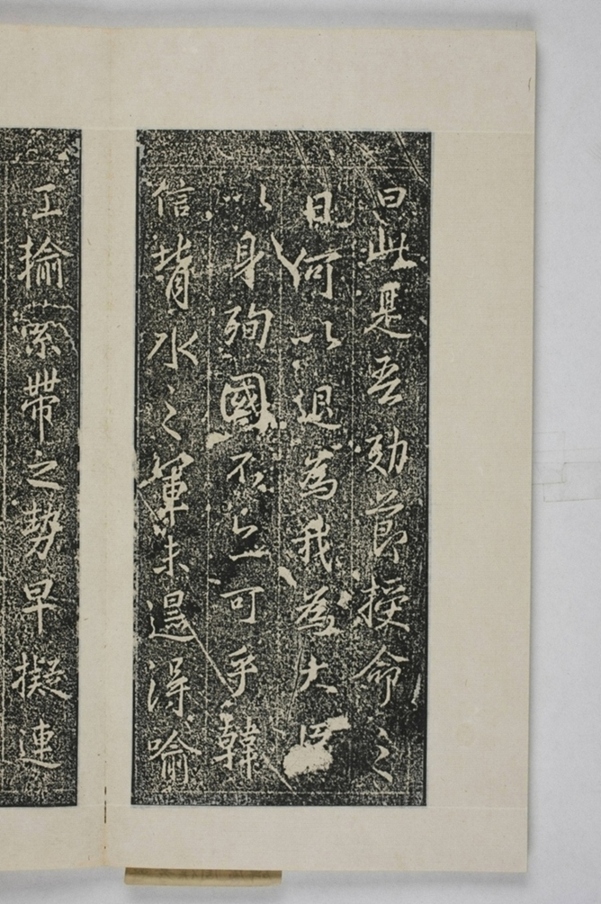 曰此是吾効節授命之
日何以退為我為大臣
以身殉國不亦可乎韓
信背水之軍未遑得喻
工輸縈帶之勢早擬連